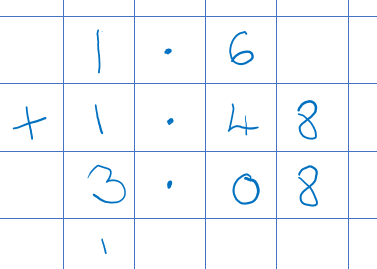 1 . 6
+ 1 . 4 8
3 . 0 8
1